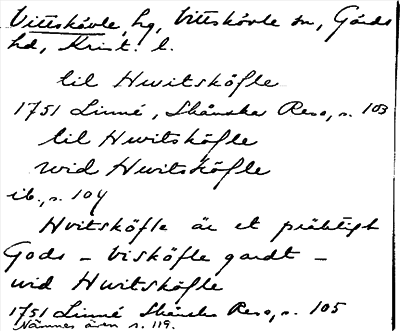 Vittskövle, hg, Vittskövle sn, Gärds
hd, Krist. l.
til Hwitsköfle
1751 Linné, Skånska Resa, s. 103
til Hwitsköfle
wid Hwitsköfle
ib., s. 104
Hvitsköfle är et präktigt
Gods - visköfle gardt -
wid Hwitsköfle
1751 Linné Skånska Resa, s. 105
Nämnes även s. 119.